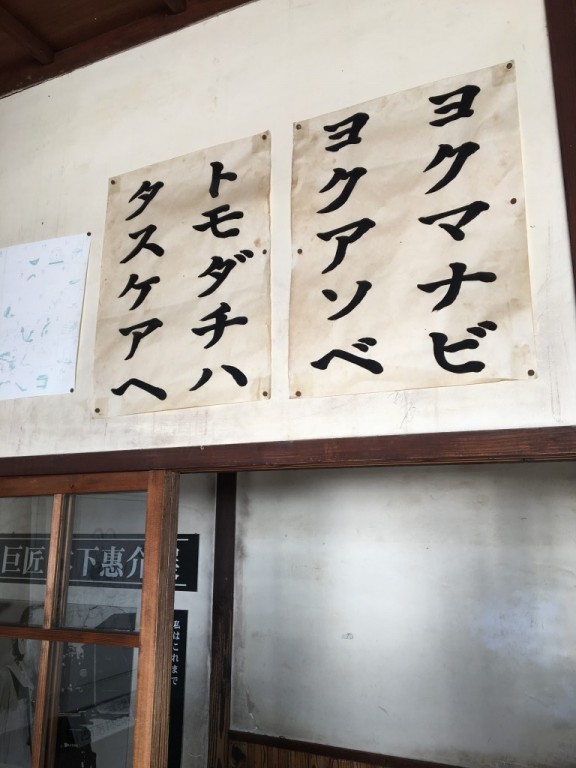 ヨクマナビ
ヨクアソベ
トモダチハ
タスケアヘ
巨匠
下惠介
私はこれまで